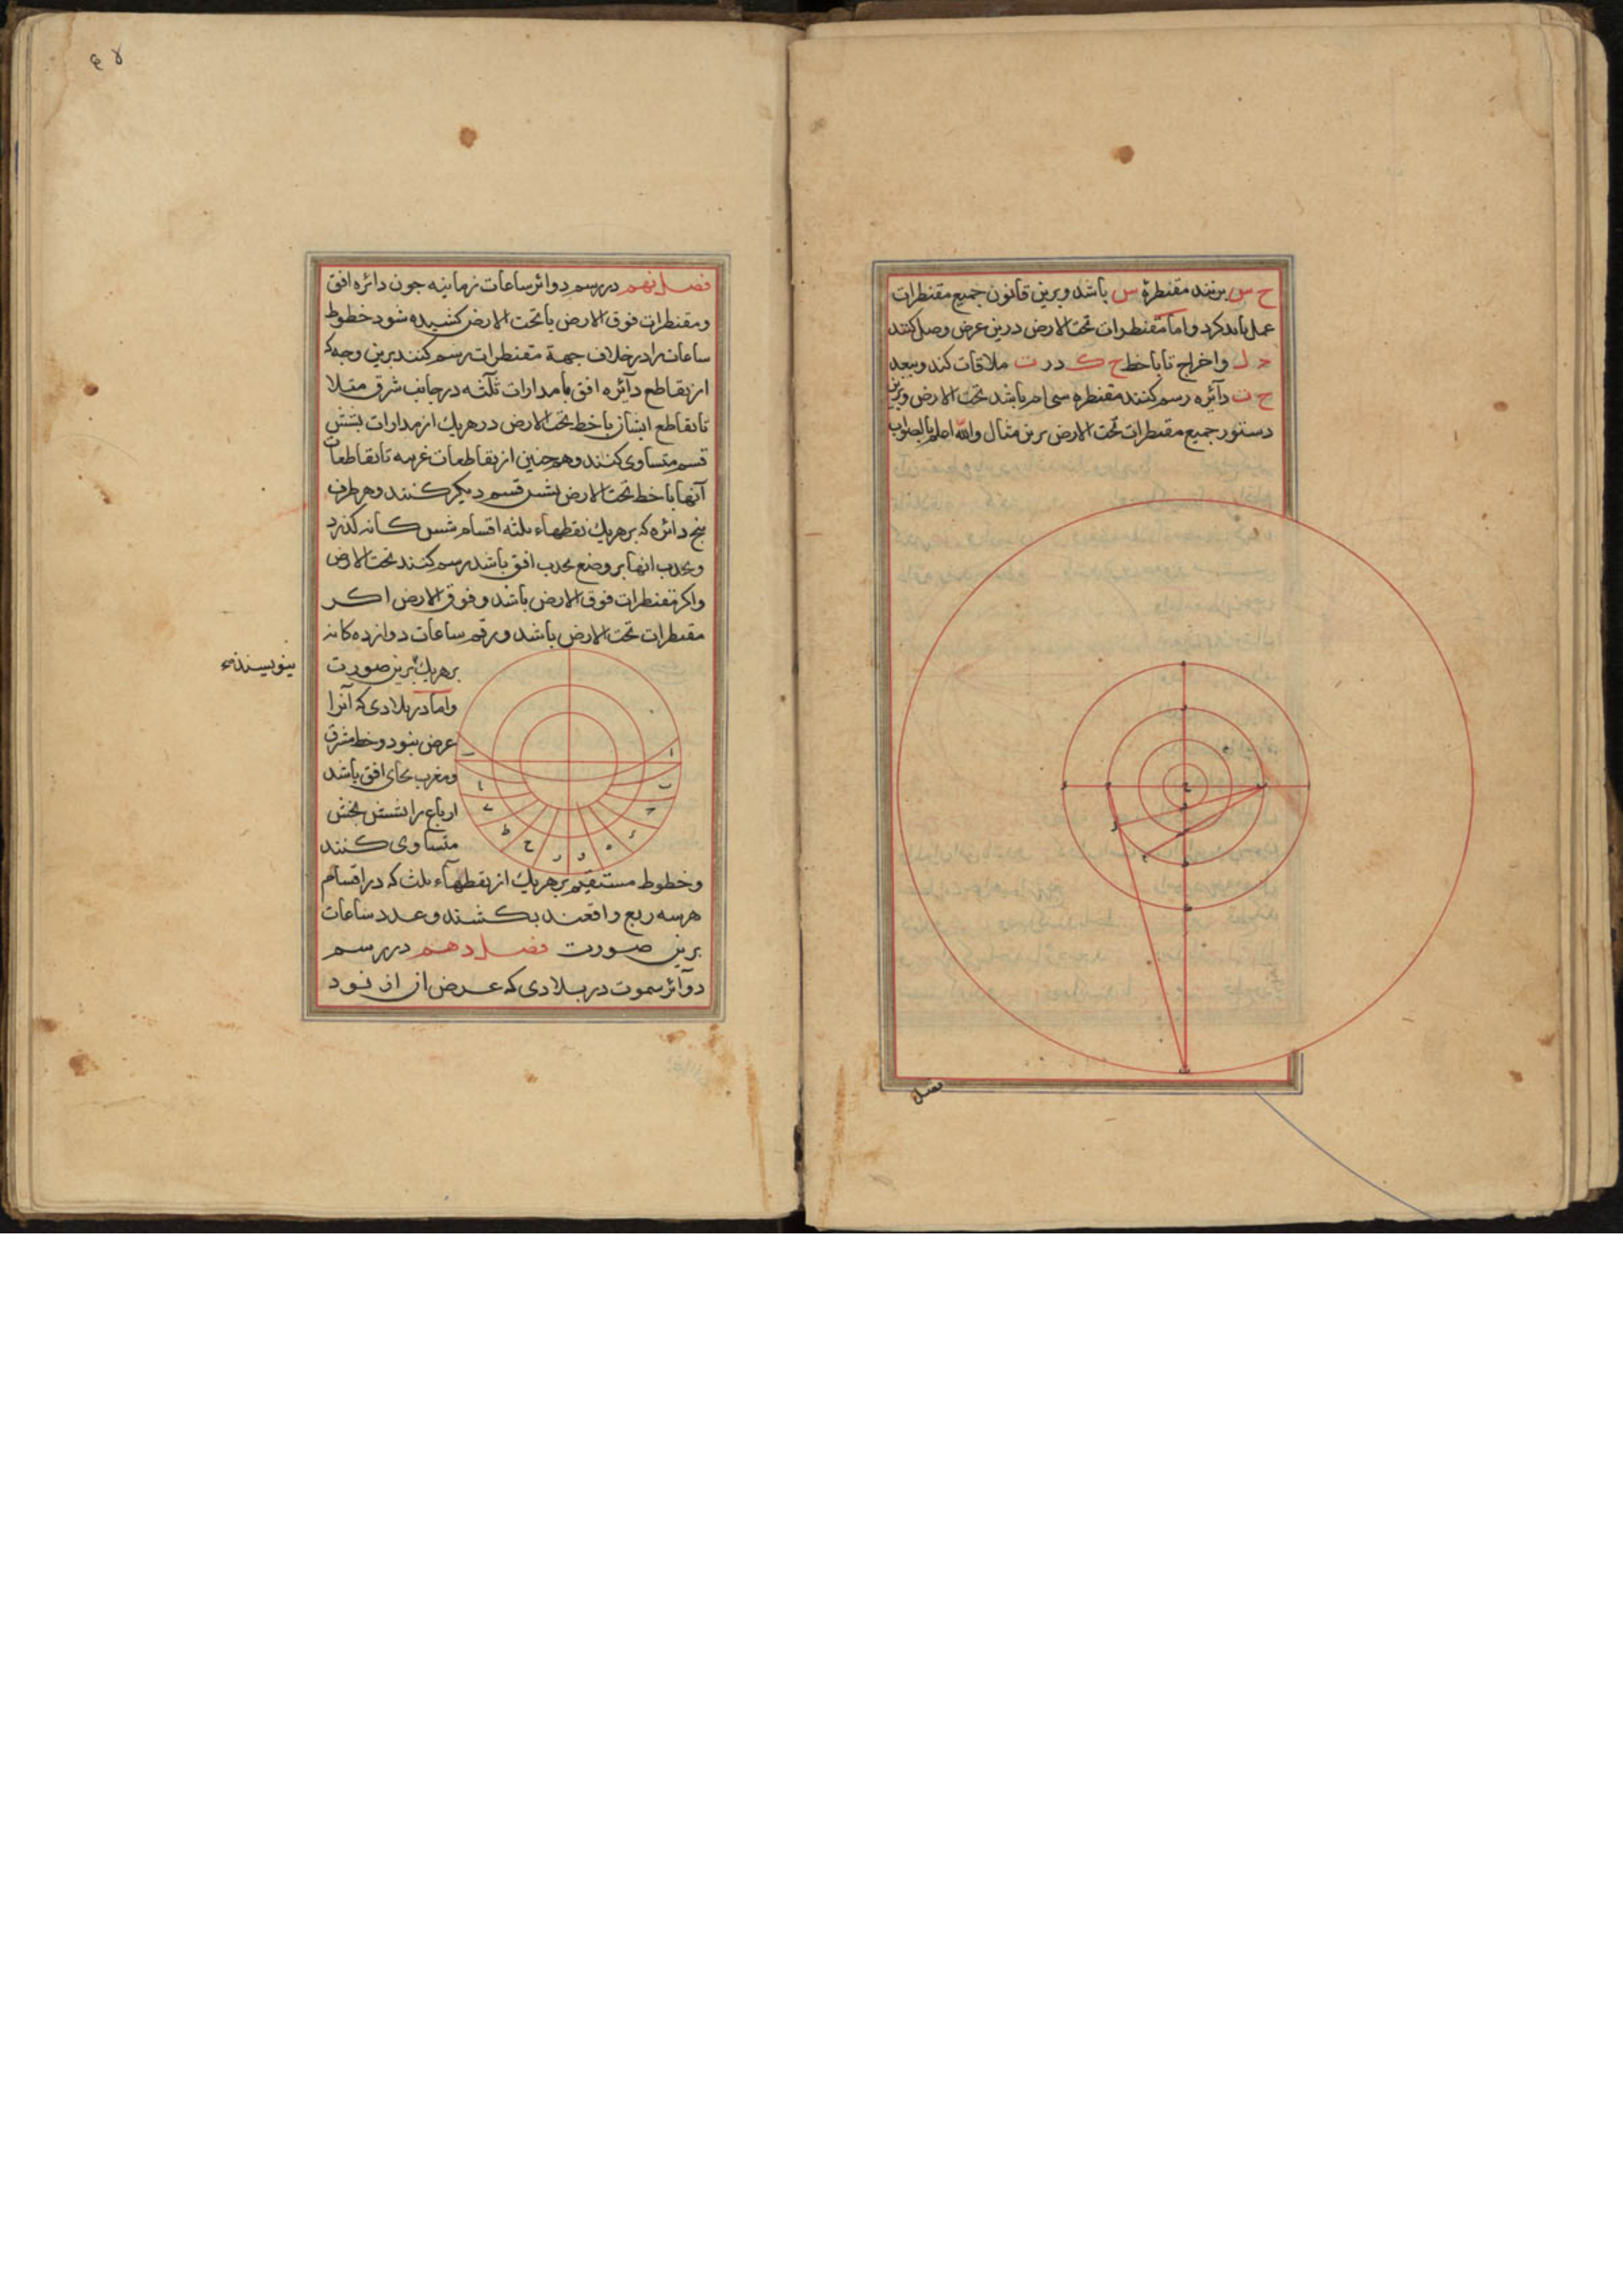 ح س بزنند مقنطرهٔ س باشد و برین قانون جمیع مقنطرات
عمل باید کرد و اما مقنطرات تحت الارض درین عرض وصل کنند
ل واخراج تا با خط ح ک در ت ملاقات کند و ببعد
ح ت دآئره رسم کنند مقنطره سی ام باشد تحت الارض و برین
دستور جمیع مقنطرات تحت الارض برین مثال والله اعلم بالصواب
فصل
فصل نهم در رسم دوائر ساعات زمانیه جون دائره افق
ومقنطرات فوق الارض یا تحت الارض کشیده شود خطوط
ساعات را در خلاف جهة مقنطرات رسم کنند برین وجه که
از تقاطع دآئره افق با مدارات ثلثه در جانب شرق مثلا
تا تقاطع ایشان با خط تحت الارض در هریک از مدارات بشش
قسم متساوی کنند وهمچنین از تقاطعات غربیه تا تقاطعات
آنها با خط تحت الارض بشش قسم دیکر کنند وهر طرف
پنج دائره که بر هریک نقطهاء ثلثه اقسام شش کانه کذرد
و محدب انها بر وضع محدب افق باشد رسم کنند تحت الارض
واکر مقنطرات فوق الارض باشد و فوق الارض اکر
مقنطرات تحت الارض باشد و رقم ساعات دوازده کانه
بر هریک برین صورت
بنویسند
واما در بلادی که آنرا
عرض نبود وخط مشرق
ومغرب بجای افق باشد
ارباع را بشش بخش
متساوی کنند
وخطوط مستقیم بر هریک از نقطهآء ثلث که در اقسام
هر سه ربع واقعند بکشند وعدد ساعات
برین صورت فصل دهم در رسم
دوآئر سموت در بلادی که عرض از نود